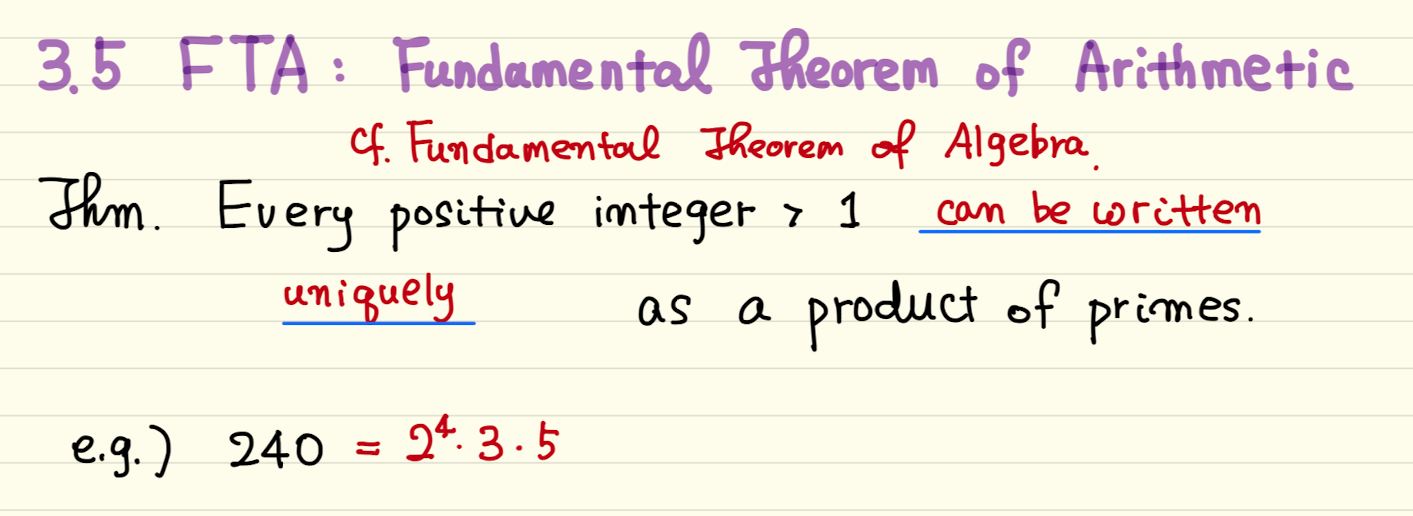 3.5 FTA: Fundamental Theorem of Arithmetic
cf. Fundamental Theorem of Algebra.
Thm. Every positive integer > 1 can be written
uniquely as a product of primes.
e.g.) 240 = 2⁴·3·5